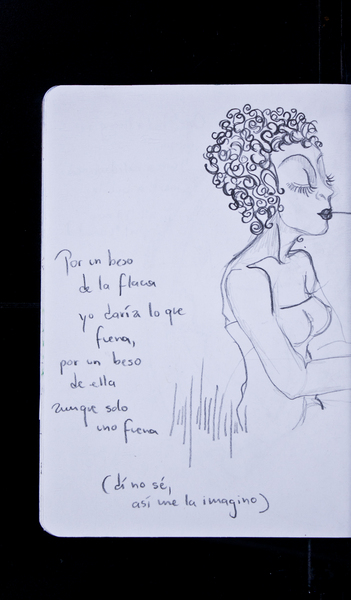 Por un beso
de la flaca
yo daría lo que
fuera,
por un beso
de ella
aunque solo
uno fuera
(di no sé,
así me la imagino)